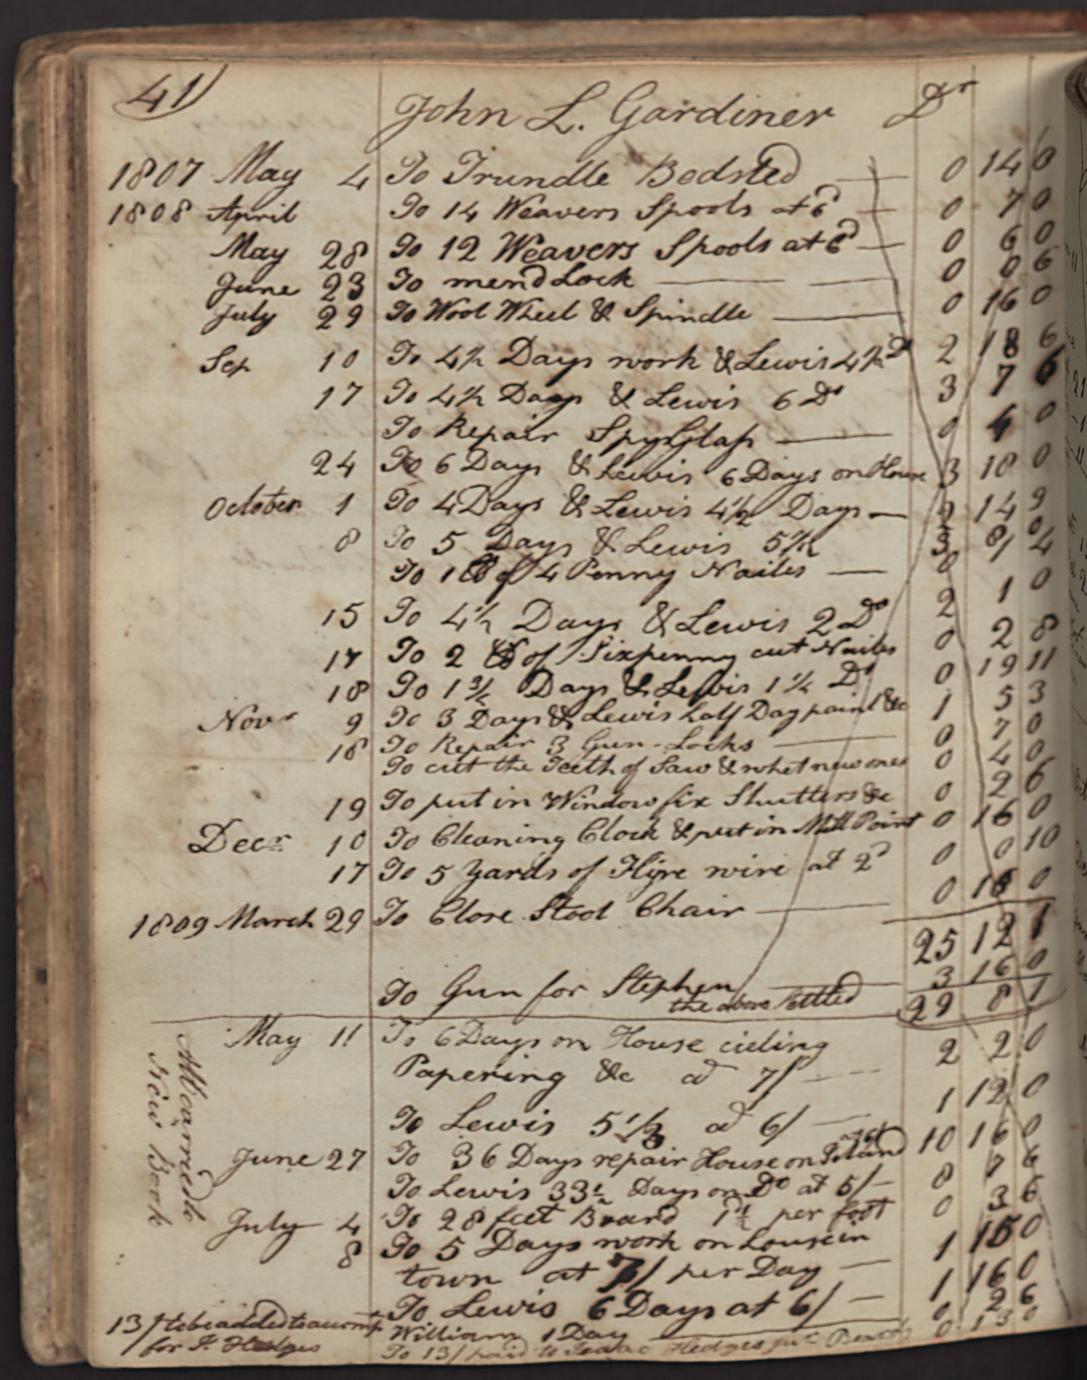 41)
John L. Gardiner Dr
1807 May 4 To Trundle Bedsted 0 14 0
1808 April To 14 Weavers Spools at 6d 0 7 0
May 28 To 12 Weavers Spools at 6d 0 6 0
June 23 To mend Lock 0 0 6
July 29 To Wool Wheel & Spindle 0 16 0
Sep 10 To 4½ Days work & Lewis 4½ Do 2 18 6
17 To 4½ Days & Lewis 6 Do 3 7 6
To Repair Spy Glass 0 4 0
24 To 6 Days & Lewis 6 Days on House 3 18 0
October 1 To 4 Days & Lewis 4½ Days 14 9
8 To 5 Days & Lewis 5½ 3 8
To 1 lb of 4 Penny Nailes 0 1 0
15 To 4½ Days & Lewis 2 Do 2
17 To 2 lb of Sixpenny cut Nailes 0 2 8
18 To 1¾ Days & Lewis 1¼ Do 0 19 11
Novr 9 To 3 Days & Lewis half Day paint &c 1 5 3
18 To Repair 3 Gun-Locks 0 7 0
To cut the Teeth of Saw & whet new ones 0 4 0
19 To put in Window fix Shutters &c 0 2 6
Decr 10 To Cleaning Clock & put in Mill Point 0 16 0
17 To 5 Yards of wire at 2d 0 0 10
1809 March 29 To Close Stool Chair 0 0
25 12 1
To Gun for Stephen 3 16 0
the above Settled 29 8 1
May 11 To 6 Days on House cieling
Papering &c a 7/ 2 2 0
To Lewis 5 a 6/ 1 12 0
June 27 To 36 Days repair House on Island 10 16 0
To Lewis 33½ Days on Do at 5/ 8 7 6
July 4 To 28 feet Board 1d½ per foot 0 3 6
8 To 5 Days work on House in
town at 7/ per Day 1 15 0
To Lewis 6 Days at 6/ 1 16 0
William 1 Day 0 2 6
To 13/ paid to Isaac Hedges 0 13 0
13/ to be added to accompt
for I. Hedges
All carried to
New Book